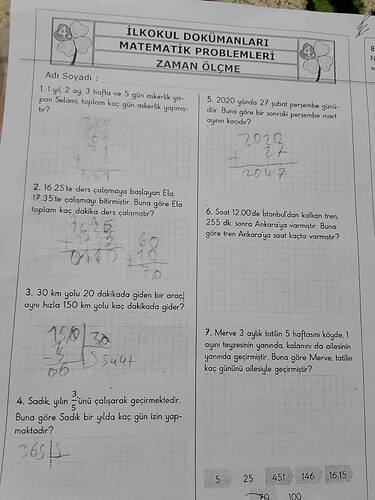 İLKOKUL DOKÜMANLARI
4
MATEMATİK PROBLEMLERİ
4
ZAMAN ÖLÇME
Adı Soyadı :
1. 1 yıl, 2 ay, 3 hafta ve 5 gün askerlik ya-
pan Selami, toplam kaç gün askerlik yapmış-
tır?
2. 16.25'te ders çalışmaya başlayan Ela,
17.35'te çalışmayı bitirmiştir. Buna göre Ela
toplam kaç dakika ders çalışmıştır?
60
+10
70
3. 30 km yolu 20 dakikada giden bir araç,
aynı hızla 150 km yolu kaç dakikada gider?
150 30
5 saat
00
4. Sadık, yılın 3/5'ünü çalışarak geçirmektedir.
Buna göre Sadık bir yılda kaç gün izin yap-
maktadır?
365 5
5. 2020 yılında 27 şubat perşembe günü-
dür. Buna göre bir sonraki perşembe mart
ayının kaçıdır?
2020
+ 27
2047
6. Saat 12.00'de İstanbul'dan kalkan tren,
255 dk. sonra Ankara'ya varmıştır. Buna
göre tren Ankara'ya saat kaçta varmıştır?
7. Merve 3 aylık tatilin 5 haftasını köyde, 1
ayını teyzesinin yanında, kalanını da ailesinin
yanında geçirmiştir. Buna göre Merve, tatilin
kaç gününü ailesiyle geçirmiştir?
5 25 451 146 16.15
70 100